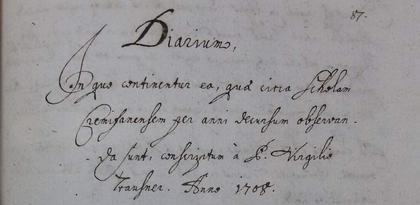 87.
Diarium,
In quo continentur ea, quæ circa Scholam
Cremifanensem per anni decursum observan-
da sunt, conscriptum à P. Virgilio
Anno 1708.